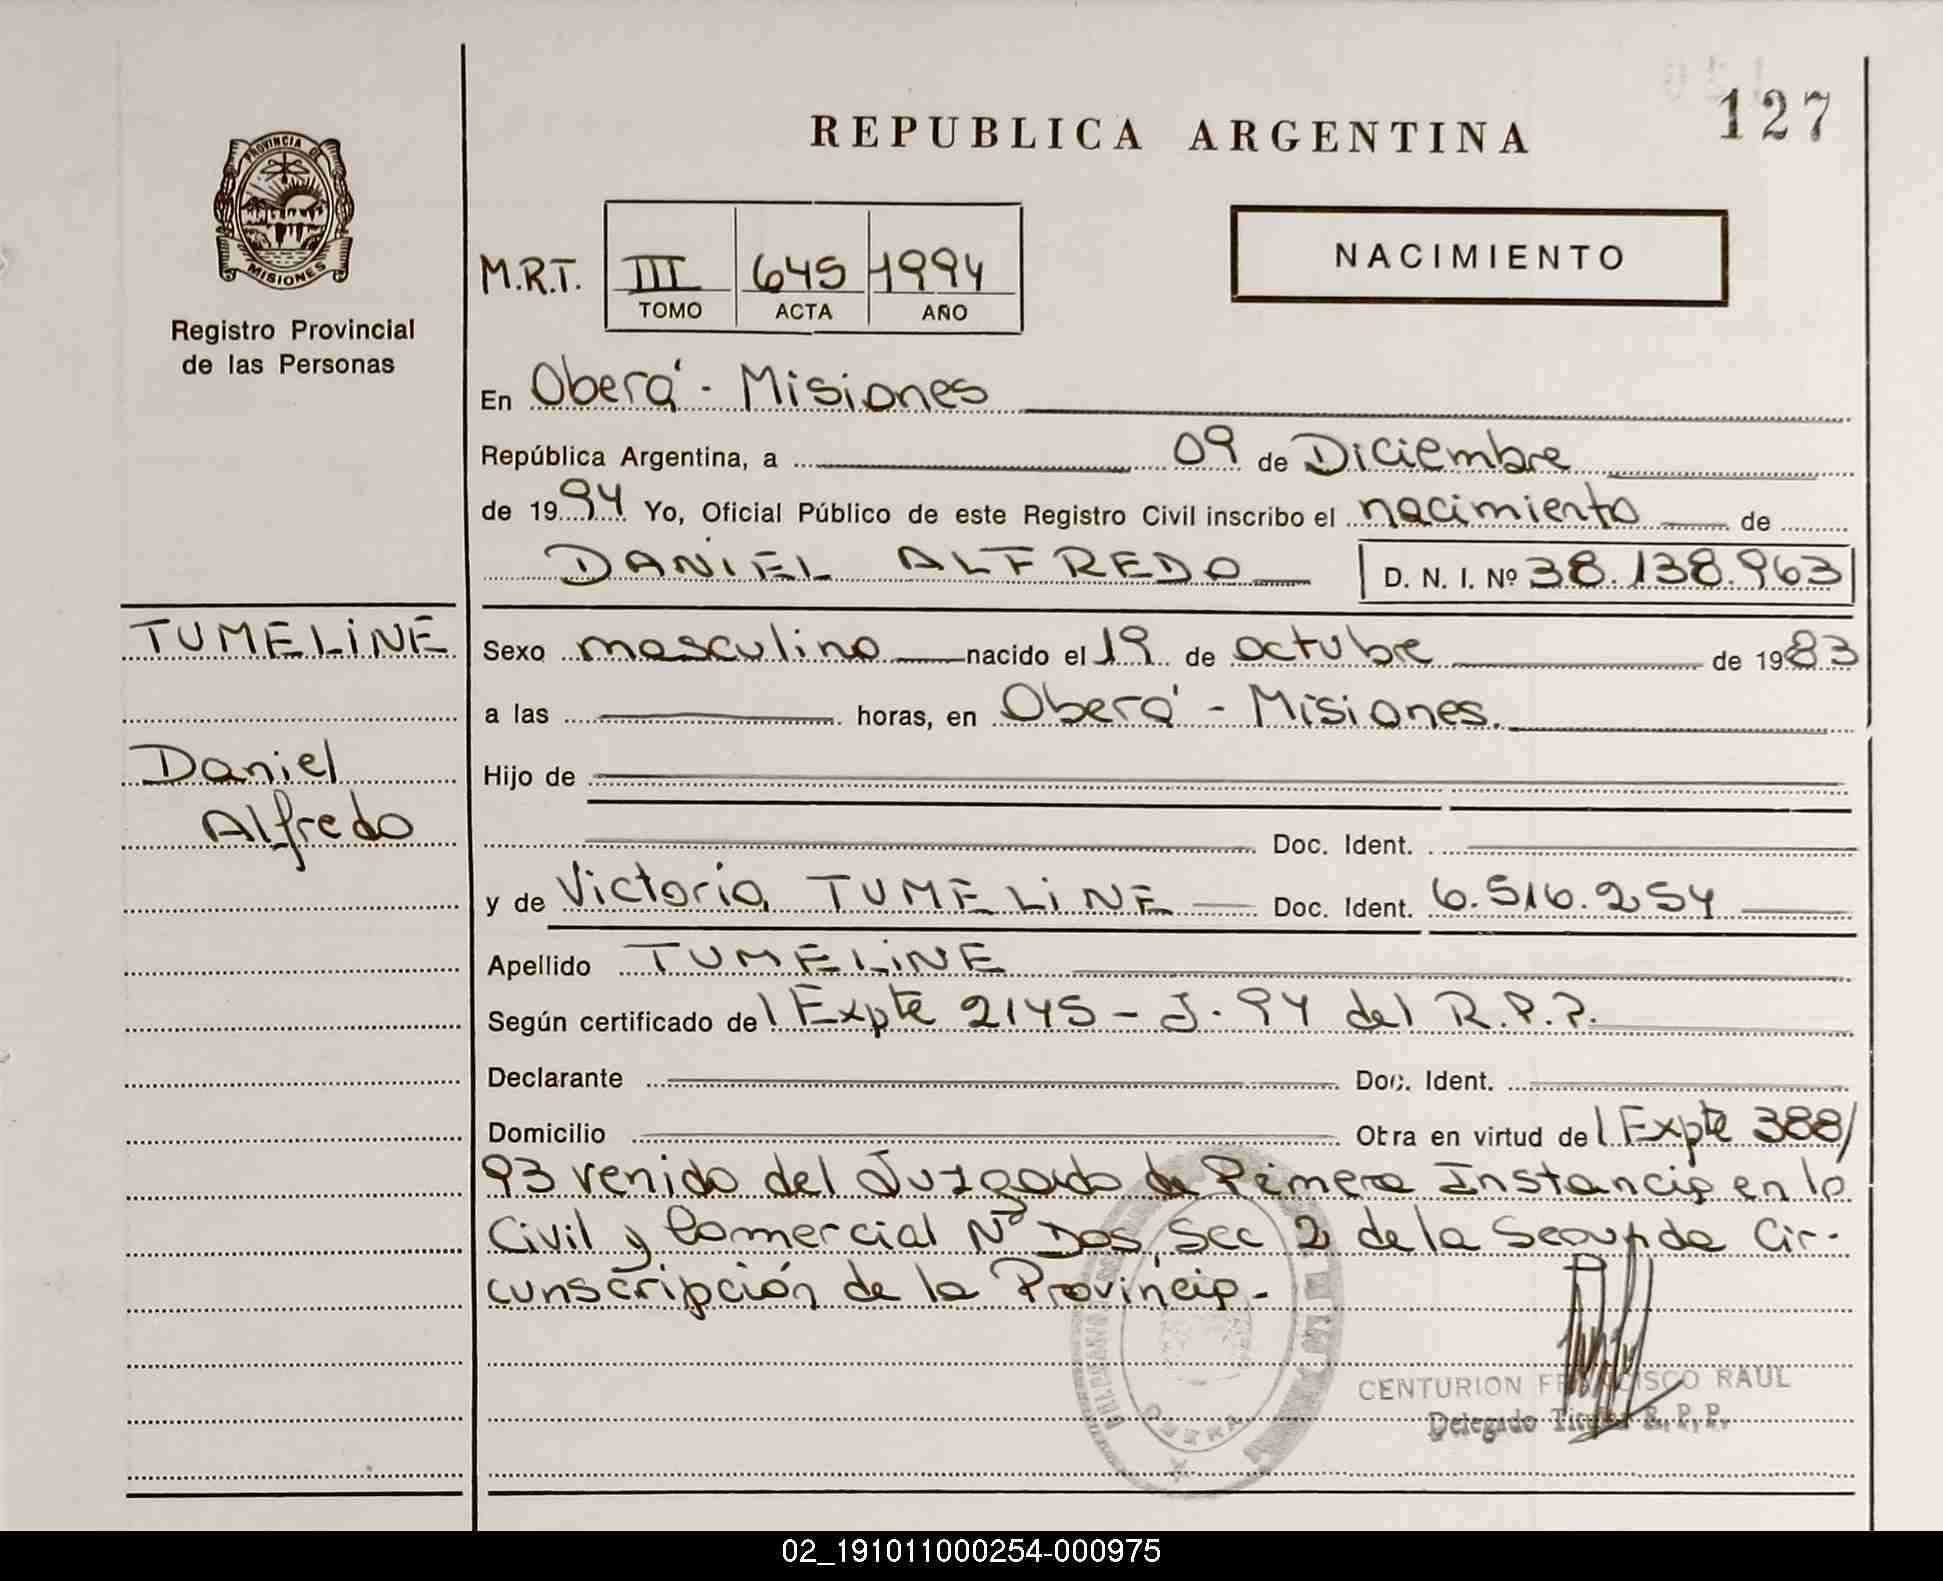 127
REPUBLICA ARGENTINA
PROVINCIA DE
MISIONES
Registro Provincial
de las Personas
NACIMIENTO
M.R.T. III 645 1994
TOMO ACTA AÑO
En Oberá - Misiones
República Argentina, a 09 de Diciembre
de 1994 Yo, Oficial Público de este Registro Civil inscribo el nacimiento de
DANIEL ALFREDO D. N. I. Nº 38.138.963
TUMELINE
Daniel
Alfredo
Sexo masculino nacido el 19 de octubre de 1983
a las horas, en Oberá - Misiones.
Hijo de
Doc. Ident.
y de Victoria TUMELINE Doc. Ident. 6.516.254
Apellido TUMELINE
Según certificado del Expte 2145 - J. 94 del R.P.P.
Declarante Doc. Ident.
Domicilio Otra en virtud del Expte 388/
93 venido del Juzgado de Primera Instancia en lo
Civil y Comercial Nº Dos, Sec 2 de la Segunda Cir-
cunscripción de la Provincia.-
OBERA
CENTURION FRANCISCO RAUL
Delegado Titular R.P.P.
02_191011000254-000975